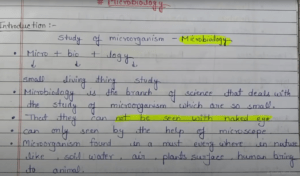 * Microbiology
Introduction :-
Study of microorganism - Microbiology
• Micro + bio + logy
↓ ↓ ↓
small living thing study
• Microbiology is the branch of science that deals with
the study of microorganism which are so small.
• That they can not be seen with naked eye
• can only seen by the help of microscope
• Microorganism found in a most every where in nature
like, soil water, air, plants surface, human being
to animal.